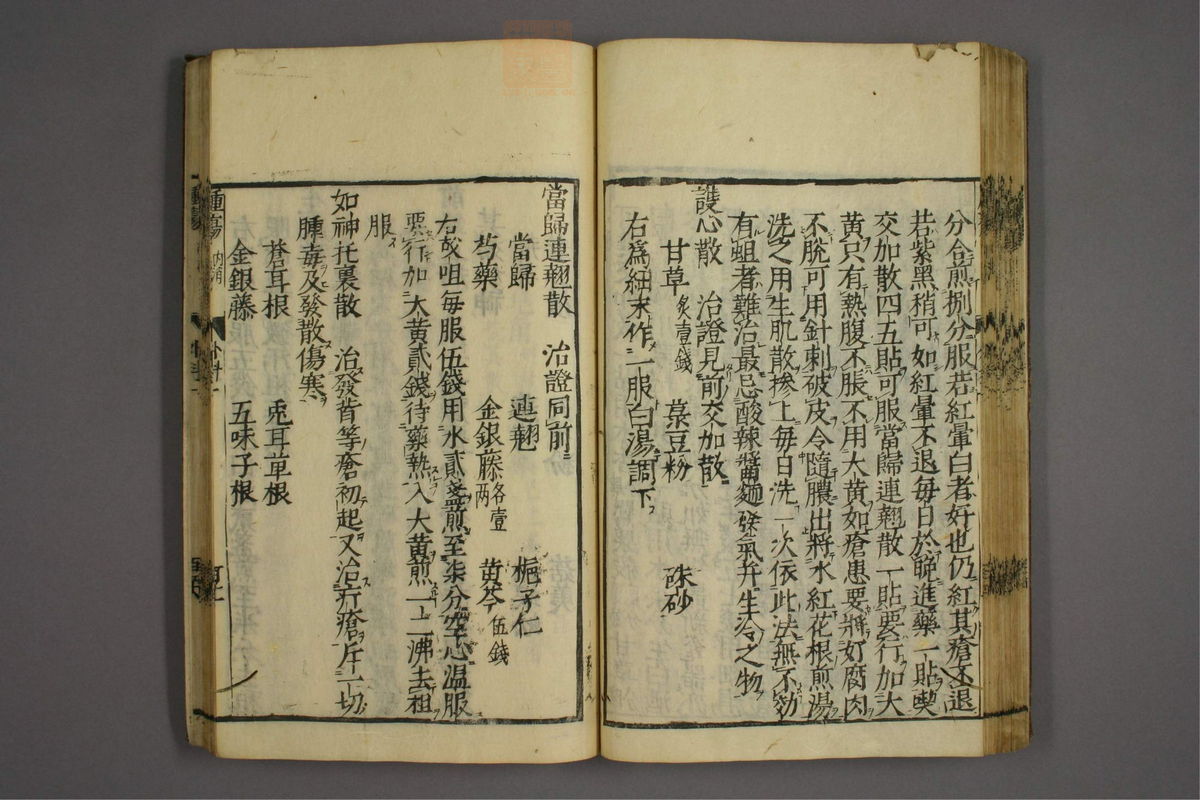 分合煎捌分服若紅暈白者好也仍紅其瘡不退
若紫黑稍可如紅暈不退每日於晚進藥一貼喫
交加散四五貼可服當歸連翹散一貼要行加大
黃只有熱腹不脹不用大黃如瘡患要將好腐肉
不脫可用針刺破皮令隨膿出將水紅花根煎湯
洗之用生肌散摻上每日洗一次依此法無不効
有蛆者難治最忌酸辣醬麵氣并生冷之物
護心散 治證見前交加散
甘草炙壹錢 菉豆粉 硃砂
右爲細末作一服白湯調下
當歸連翹散 治證同前
當歸 連翹 梔子仁
芍藥 金銀藤各壹兩 黃芩伍錢
右㕮咀每服伍錢用水貳盞煎至柒分空心温服
要行加大黃貳錢待藥熟入大黃煎一二沸去柤
服
如神托裏散 治發背等瘡初起又治疔瘡并一切
腫毒及發散傷寒
蒼耳根 兎耳草根
金銀藤 五味子根
腫瘍